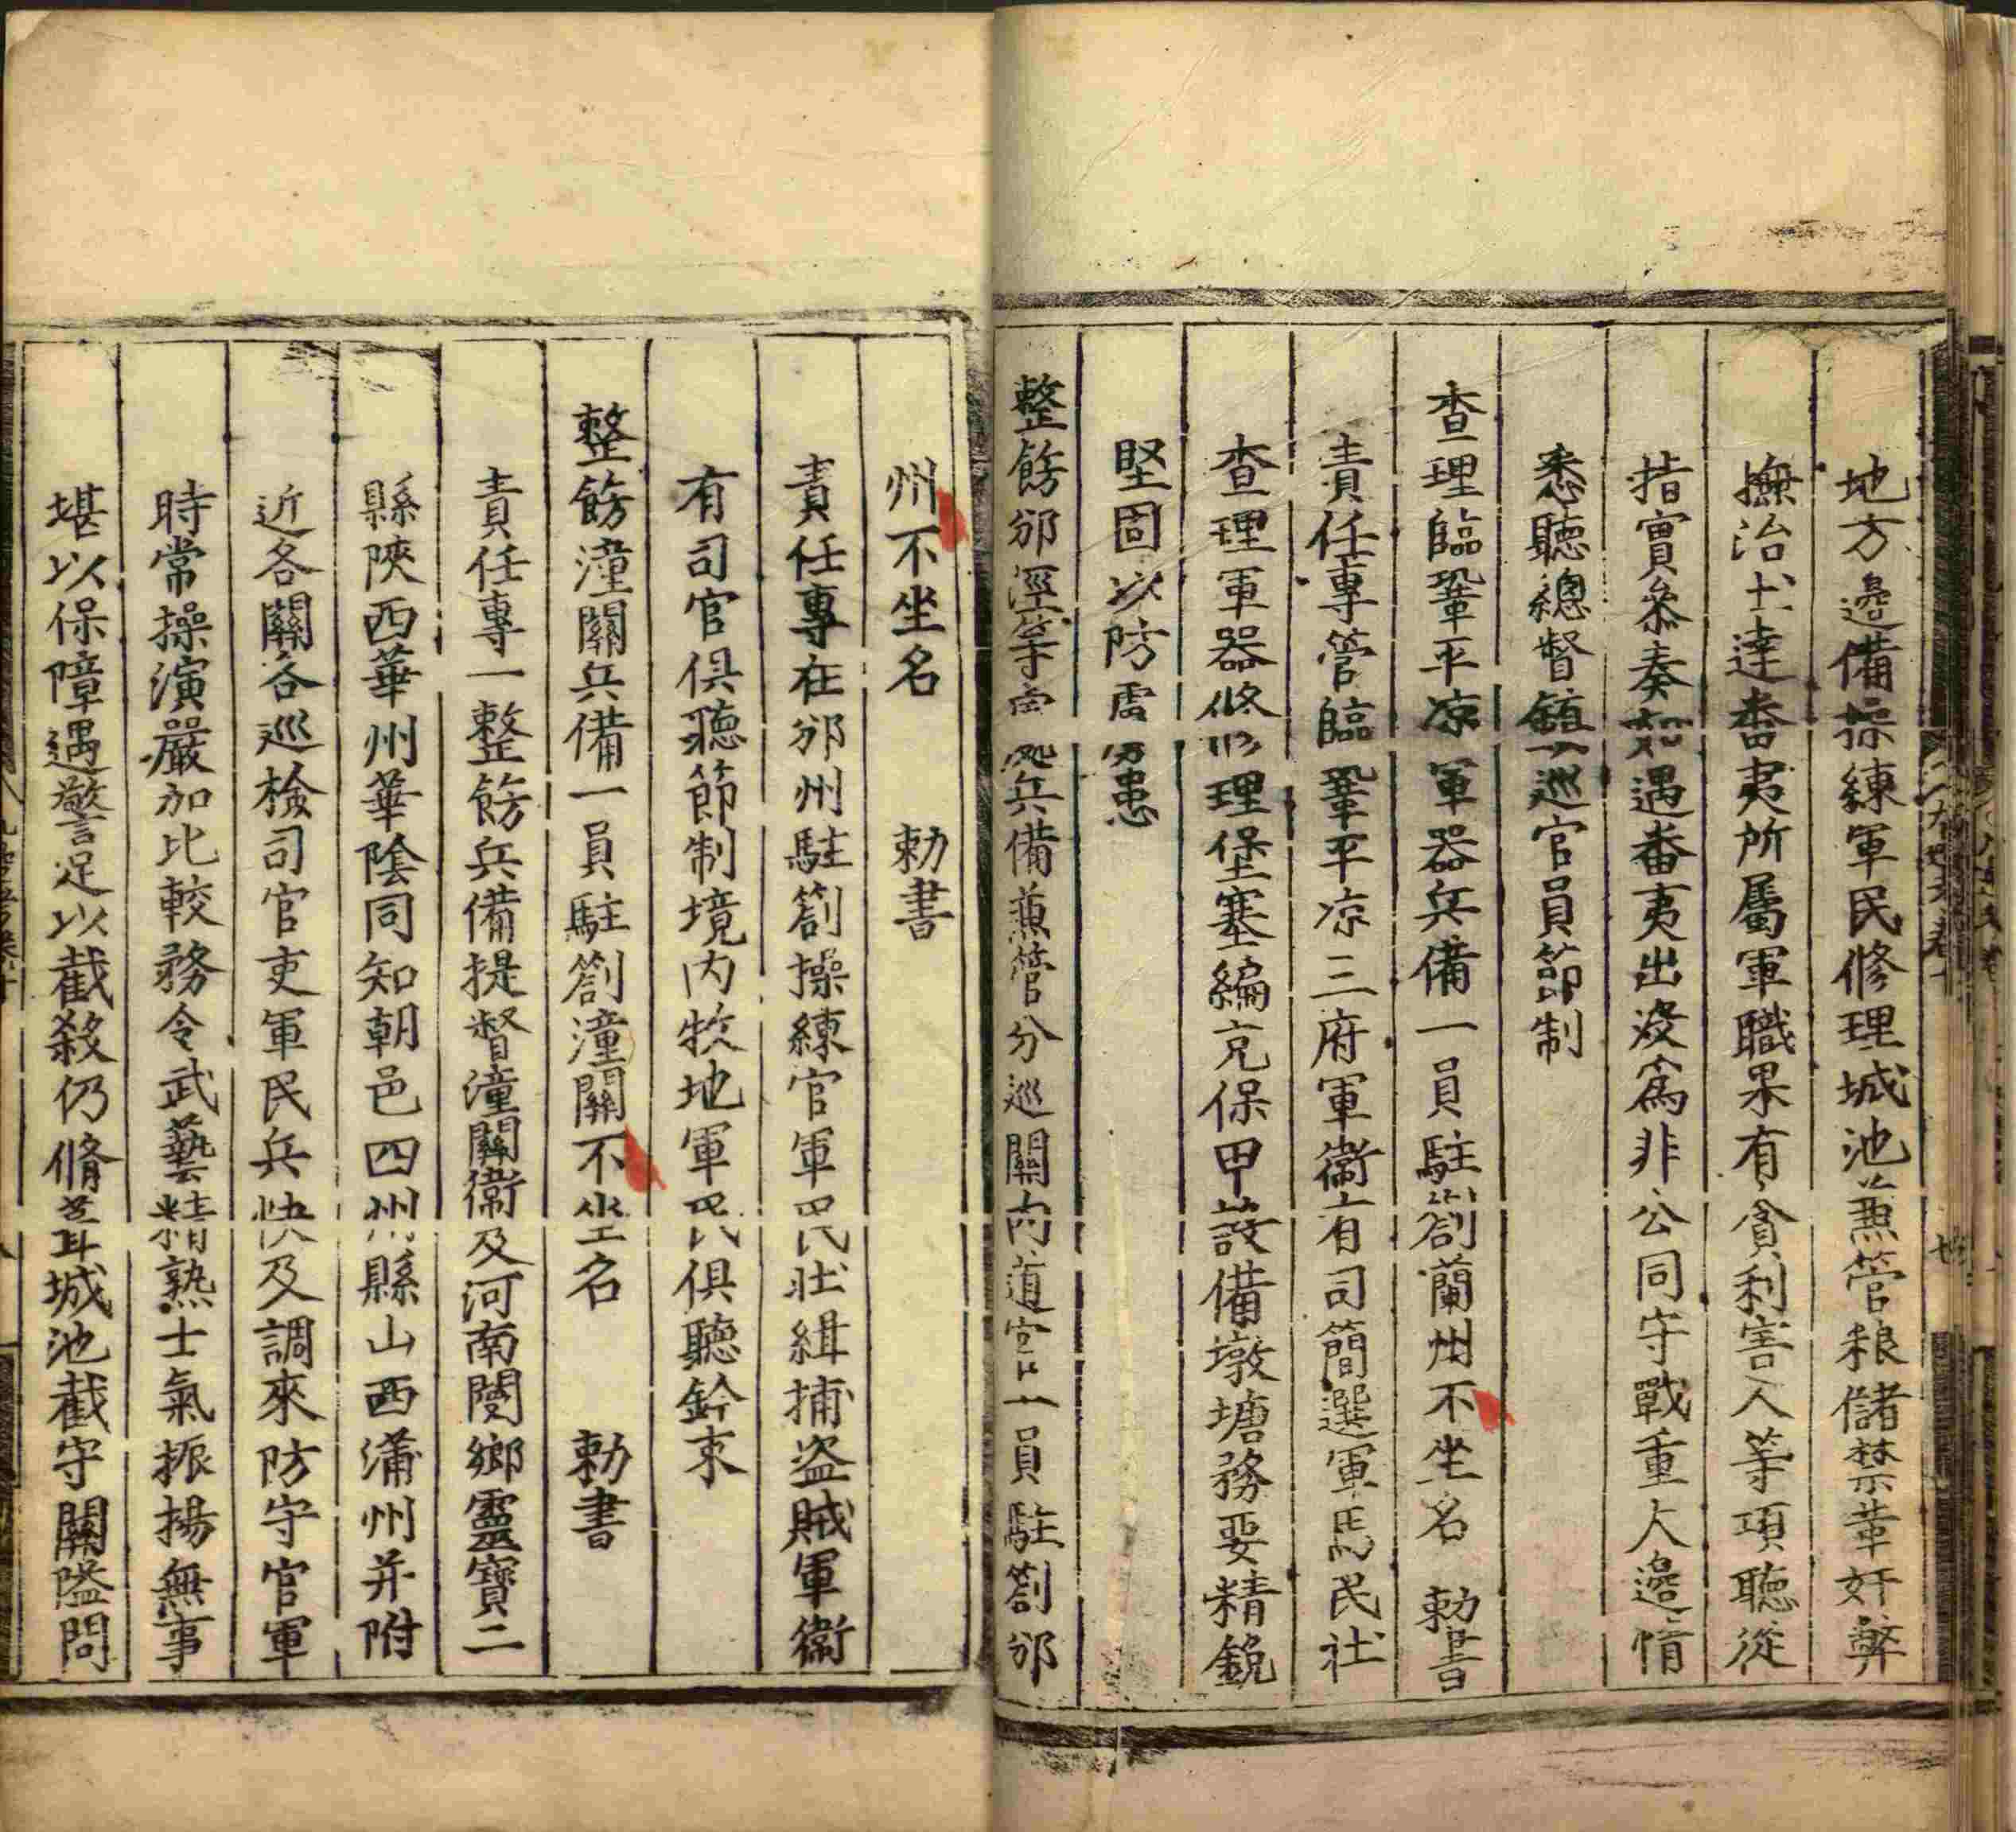 地方邊備操練軍民修理城池兼管粮儲禁革奸弊
撫治土達畨夷所屬軍職果有貪利害人等項聽從
指實叅奏如遇番夷出沒為非公同守戰重大邊情
悉聽總督鎮巡官員節制
查理臨鞏平凉軍器兵備一員駐劄蘭州不坐名 勅書
責任專管臨鞏平凉三府軍衞有司簡選軍馬民社
查理軍器修理堡塞編充保甲設備墩塘務要精銳
堅固以防虜患
整飭邠涇等處兵備兼管分巡關內道官一員駐劄邠
州不坐名 勅書
責任專在邠州駐劄操練官軍民壯緝捕盗賊軍衞
有司官俱聽節制境内牧地軍民俱聽鈐束
整飭潼關兵備一員駐劄潼關不坐名 勅書
責任專一整飭兵備提督潼關衞及河南閿鄉靈寶二
縣陜西華州華陰同知朝邑四州縣山西蒲州并附
近各關各巡檢司官吏軍民兵快及調來防守官軍
時常操演嚴加比較務令武藝精熟士氣振揚無事
堪以保障遇警足以截殺仍脩葺城池截守關隘問